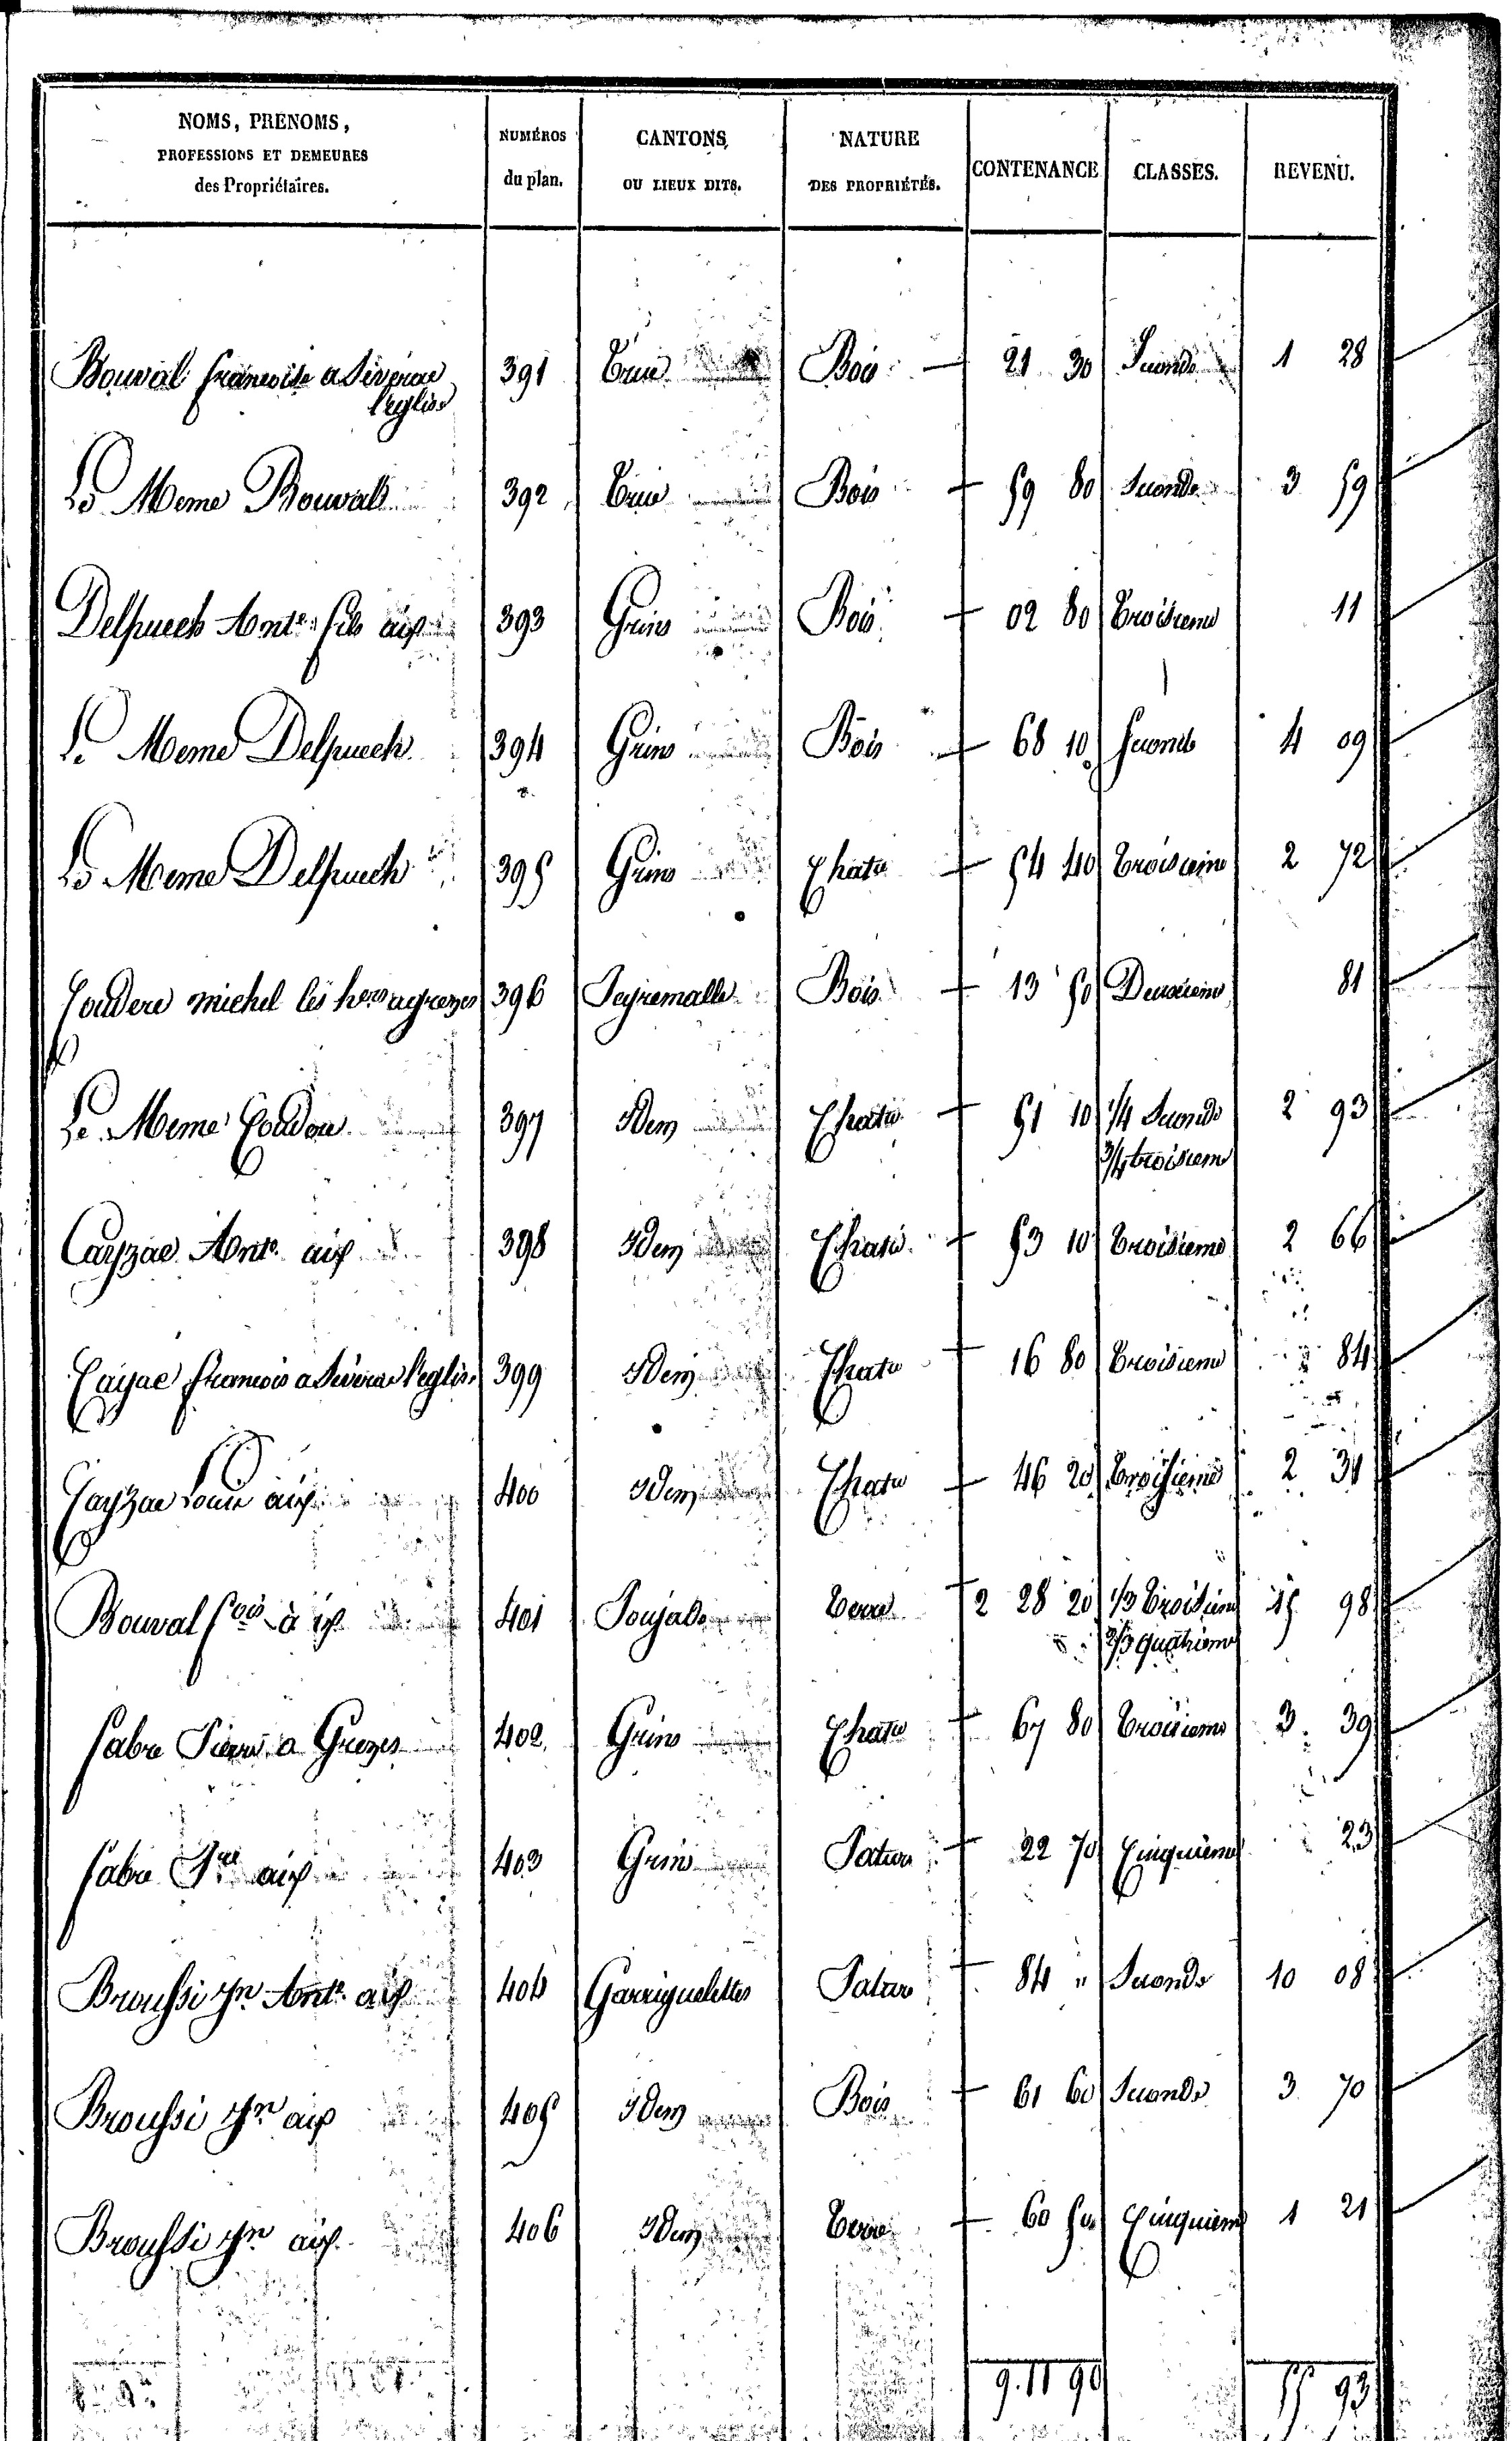 NOMS, PRÉNOMS, PROFESSIONS ET DEMEURES des Propriétaires. | NUMÉROS du plan. | CANTONS OU LIEUX DITS. | NATURE DES PROPRIÉTÉS. | CONTENANCE | CLASSES. | REVENU.
Bouval francoise a Severac l'eglise | 391 | | Bois | 21 30 | Seconde | 1 28
Le Meme Bouval | 392 | | Bois | 59 80 | Seconde | 3 59
Delpuech Ante fils aix | 393 | Grins | Bois | 02 80 | Troisieme | 11
Le Meme Delpuech | 394 | Grins | Bois | 68 10 | Seconde | 4 09
Le Meme Delpuech | 395 | Grins | Chate | 54 40 | Troisieme | 2 72
Couderc michel les hers a grezes | 396 | Peyremalle | Bois | 13 50 | Deuxieme | 81
Le Meme Couderc | 397 | Idem | Chate | 51 10 | 1/4 Seconde 3/4 troisieme | 2 93
Cayzac Ante aix | 398 | Idem | Chate | 53 10 | Troisieme | 2 66
Cayzac francois a Severac l'eglise | 399 | Idem | Chate | 16 80 | Troisieme | 84
Cayzac Louis aix | 400 | Idem | Chate | 46 20 | Troisieme | 2 31
Bouval fcois à ix | 401 | Poujade | Terre | 2 28 20 | 1/3 Troisieme 2/3 quatrieme | 15 98
fabre Pierre a Grezes | 402 | Grins | Chate | 67 80 | Troisieme | 3 39
fabre Pre aix | 403 | Grins | Pature | 22 70 | Cinquieme | 23
Broussi jn Ante aix | 404 | Garriguelettes | Pature | 84 " | Seconde | 10 08
Broussi jn aix | 405 | Idem | Bois | 61 60 | Seconde | 3 70
Broussi jn aix | 406 | Idem | Terre | 60 50 | Cinquieme | 1 21
9. 11 90 | 55 93